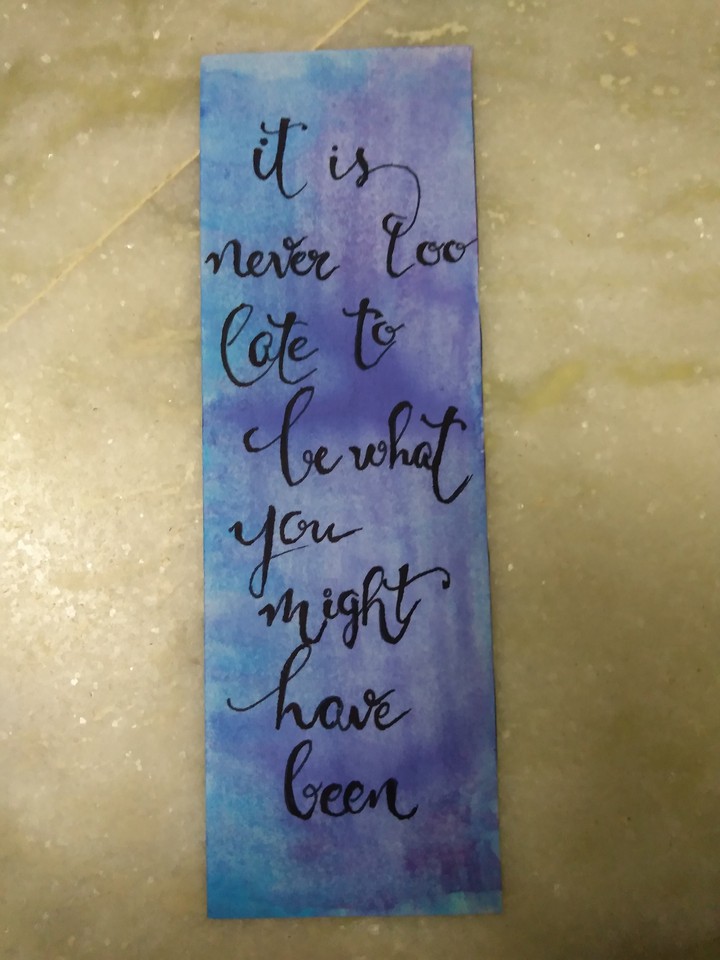 it is
never too
late to
be what
you
might
have
been